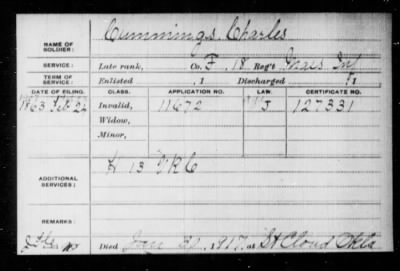 Cummings, Charles
NAME OF SOLDIER:
SERVICE: Late rank, Co. F, 18 Reg't Mass Inf
TERM OF SERVICE: Enlisted , 1 Discharged , 1
DATE OF FILING. CLASS. APPLICATION NO. LAW. CERTIFICATE NO.
1863 Feb 22 Invalid, 11672 127331
Widow,
Minor,
ADDITIONAL SERVICES: K 13 VRC
REMARKS:
Died 1917, at St Cloud Okla